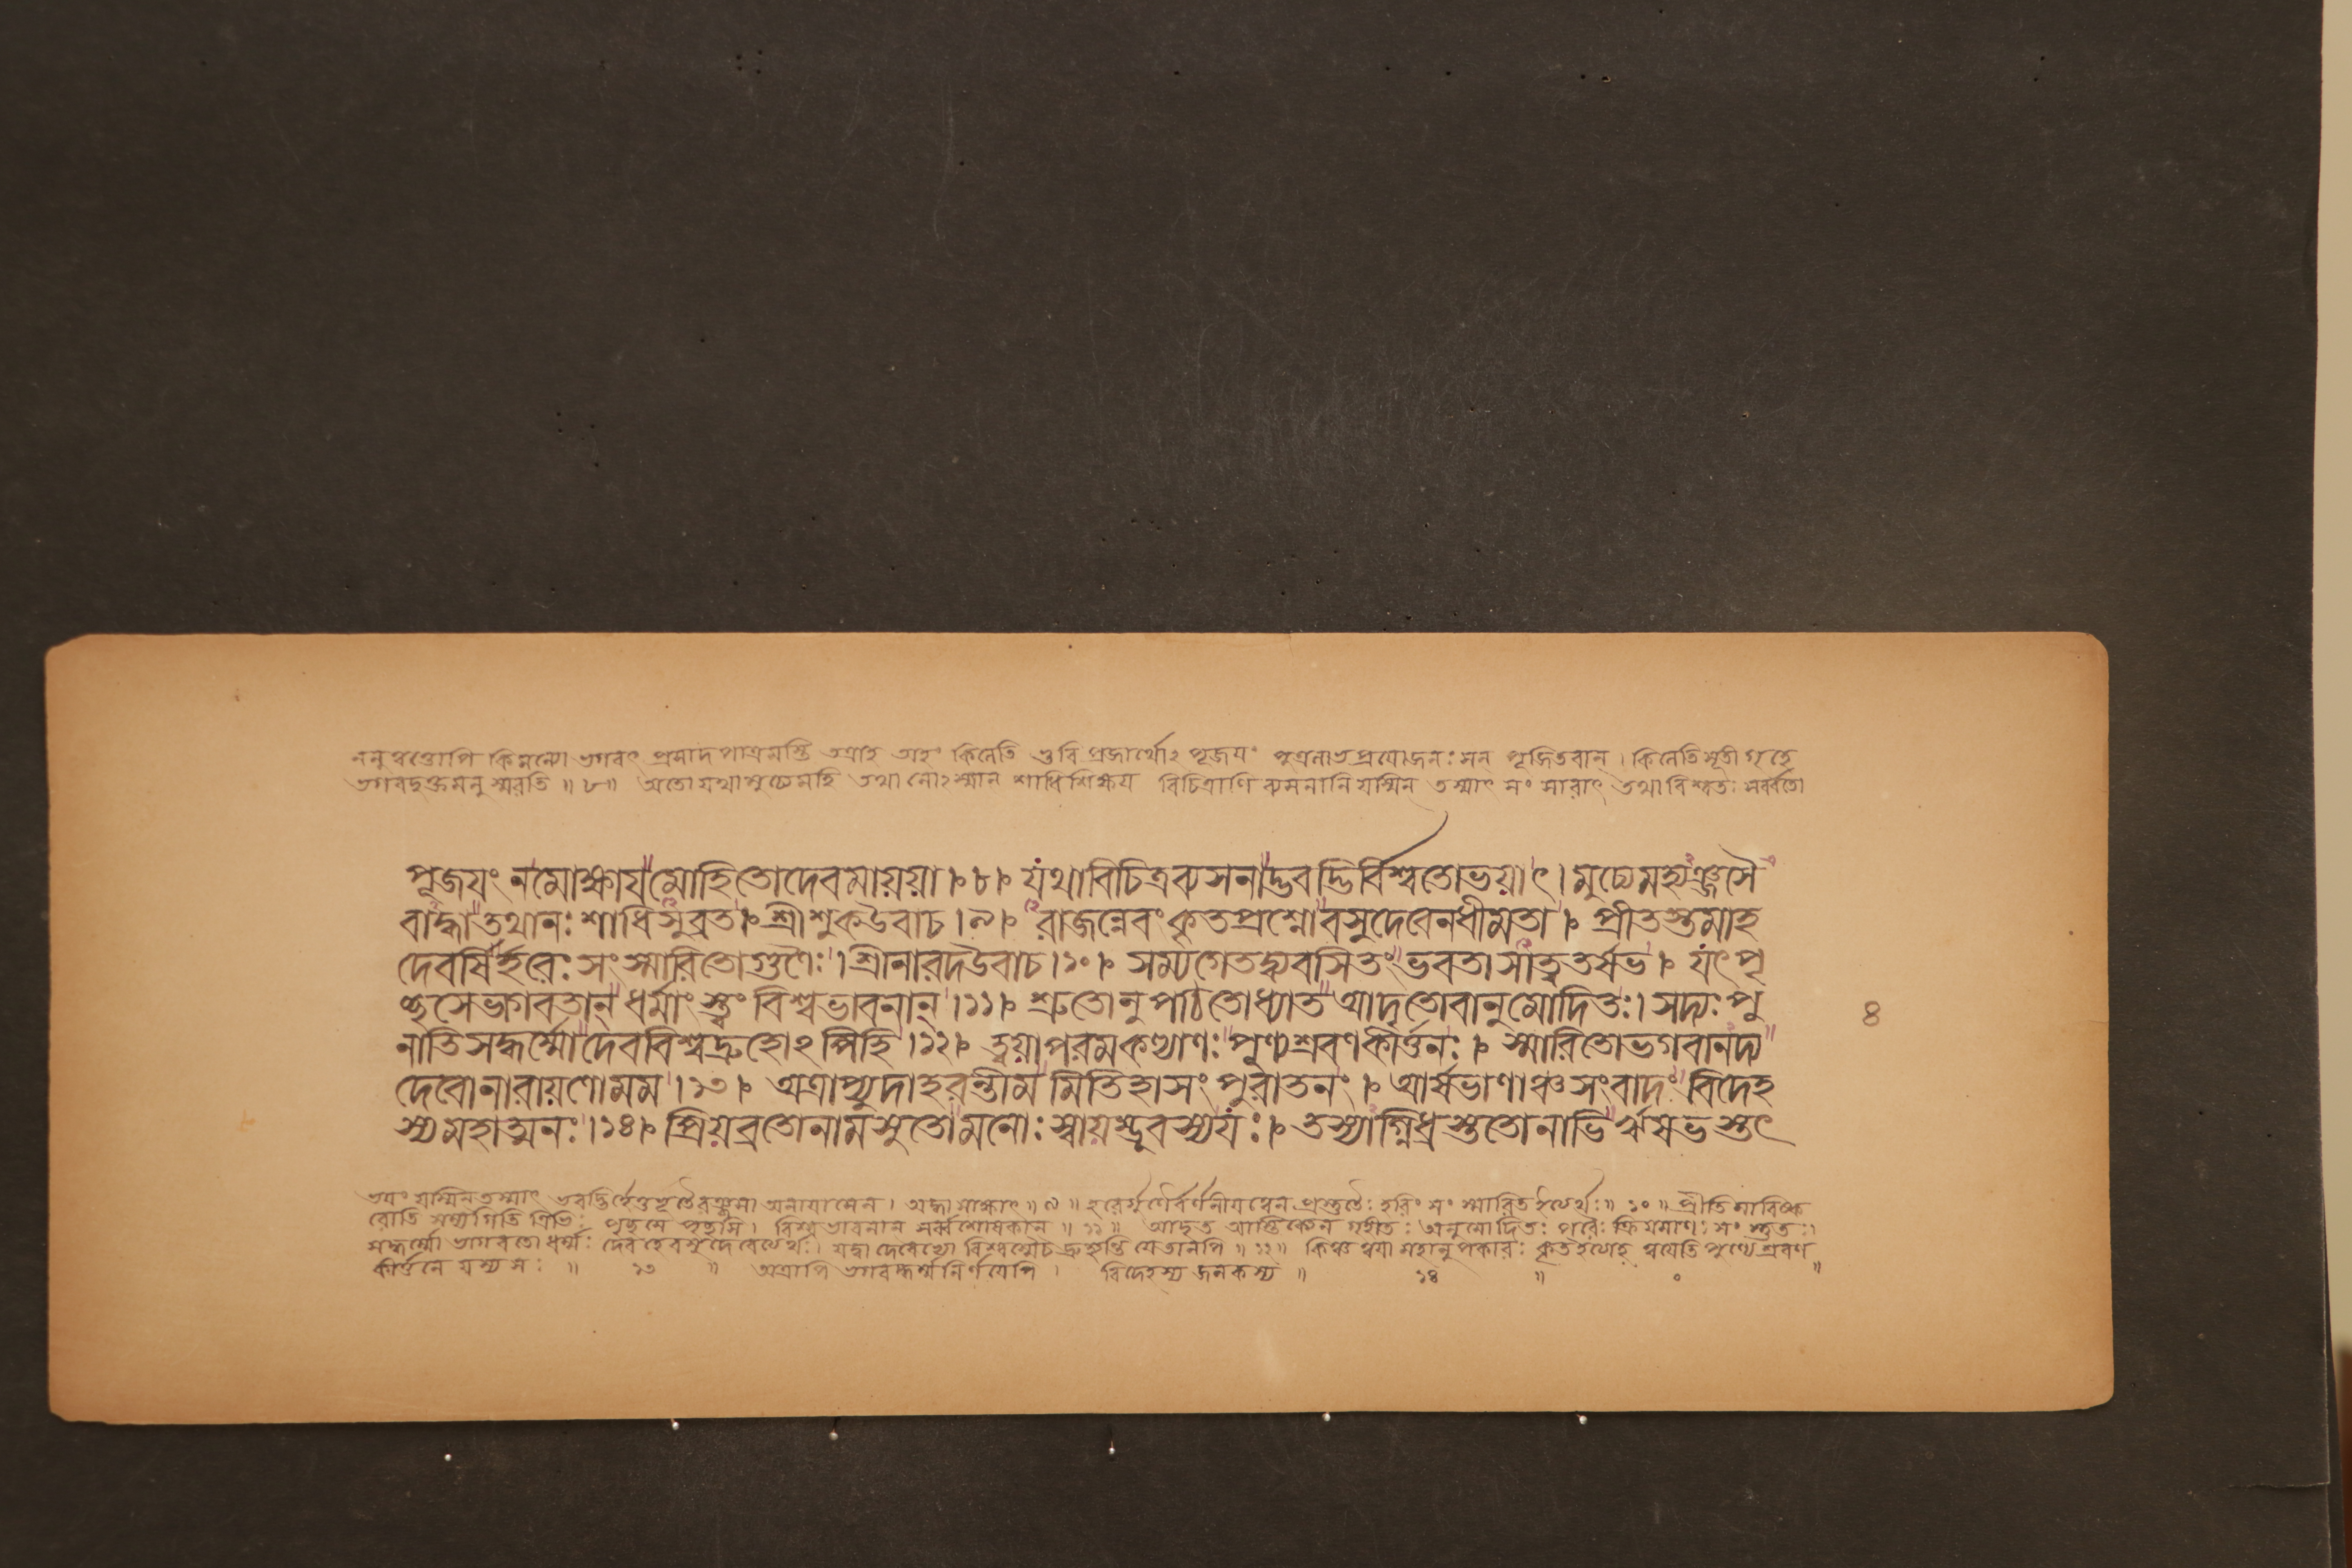 ননু ত্বত্তোপি কিমন্যো ভগবৎ প্রসাদ পাত্রমস্তি তত্রাহ অহং কিলেতি ভুবি প্রজার্থোঽ পূজয়ং পুত্রলাভপ্রয়োজনঃ সন্ পূজিতবান্ । কিলেতি সূতী গৃহে
ভগবদুক্তমনু স্মরতি ॥ ৮ ॥ অতো যথা মুচ্যেমহি তথা নোঽস্মান্ শাধি শিক্ষয় বিচিত্রাণি ব্যসনানি যস্মিন্ তস্মাৎ সং সারাৎ তথা বিশ্বতঃ সর্ব্বতো
পূজয়ং নমোক্ষায়মোহিতোদেবমায়য়া । ৮ । যথাবিচিত্রব্যসনাদ্ভবদ্ভির্বিশ্বতোভয়াৎ । মুচ্যেমহ্যঞ্জসৈ
বাদ্ধাতথানঃ শাধিসুব্রত । শ্রীশুকউবাচ । ৯ । রাজন্নেবং কৃতপ্রশ্নোবসুদেবেনধীমতা । প্রীতস্তমাহ
দেবর্ষির্হরেঃ সংস্মারিতোগুণৈঃ । শ্রীনারদউবাচ । ১০ । সম্যগেতদ্ব্যবসিতং ভবতাসাত্বতর্ষভ । যৎপৃ
চ্ছসেভাগবতান্ ধর্মাংস্ত্বং বিশ্বভাবনান্ । ১১ । শ্রুতোনুপঠিতোধ্যাত আদৃতোবানুমোদিতঃ । সদ্যঃপু
নাতিসদ্ধর্ম্মোদেববিশ্বদ্রুহোঽপিহি । ১২ । ত্বয়াপরমকল্যাণঃ পুণ্যশ্রবণকীর্ত্তনঃ । স্মারিতোভগবানদ্য
দেবোনারায়ণোমম । ১৩ । অত্রাপ্যুদাহরন্তীমমিতিহাসং পুরাতনং । আর্ষভাণাঞ্চসংবাদং বিদেহ
স্যমহাত্মনঃ । ১৪ । প্রিয়ব্রতোনামসুতোমনোঃ স্বায়ম্ভুবস্যযঃ । তস্যাগ্নিধ্রস্ততোনাভির্ঋষভস্তৎ
৪
ভয়ং যস্মিন্ তস্মাৎ ভবদ্ভির্হেতুভূতৈরঞ্জসা অনায়াসেন । অদ্ধা সাক্ষাৎ ॥ ৯ ॥ হরের্গুণৈর্বর্ণনীয়ত্বেন প্রস্তুতৈঃ হরিং সং স্মারিত ইত্যর্থঃ ॥ ১০ ॥ প্রীতিমাবিষ্ক
রোতি সম্যগিতি ত্রিভিঃ পৃচ্ছসে পৃচ্ছসি । বিশ্ব ভাবনান্ সর্ব্বশোধকান্ ॥ ১১ ॥ আদৃত আস্তিক্যেন গৃহীতঃ অনুমোদিতঃ পরৈঃ ক্রিয়মাণঃ সং স্তুতঃ ।
সদ্ধর্ম্মো ভাগবতো ধর্ম্মঃ দেব হে বসুদেবেত্যর্থঃ । যদ্বা দেবেভ্যো বিশ্বস্মৈচ দ্রুহ্যন্তি যেতানপি ॥ ১২ ॥ কিঞ্চ ত্বয়া মহানুপকারঃ কৃত ইত্যাহ ত্বয়েতি পুণ্যে শ্রবণ
কীর্ত্তনে যস্য সঃ ॥ ১৩ ॥ অত্রাপি ভগবদ্ধর্ম্মনির্ণয়েপি । বিদেহস্য জনকস্য ॥ ১৪ ॥